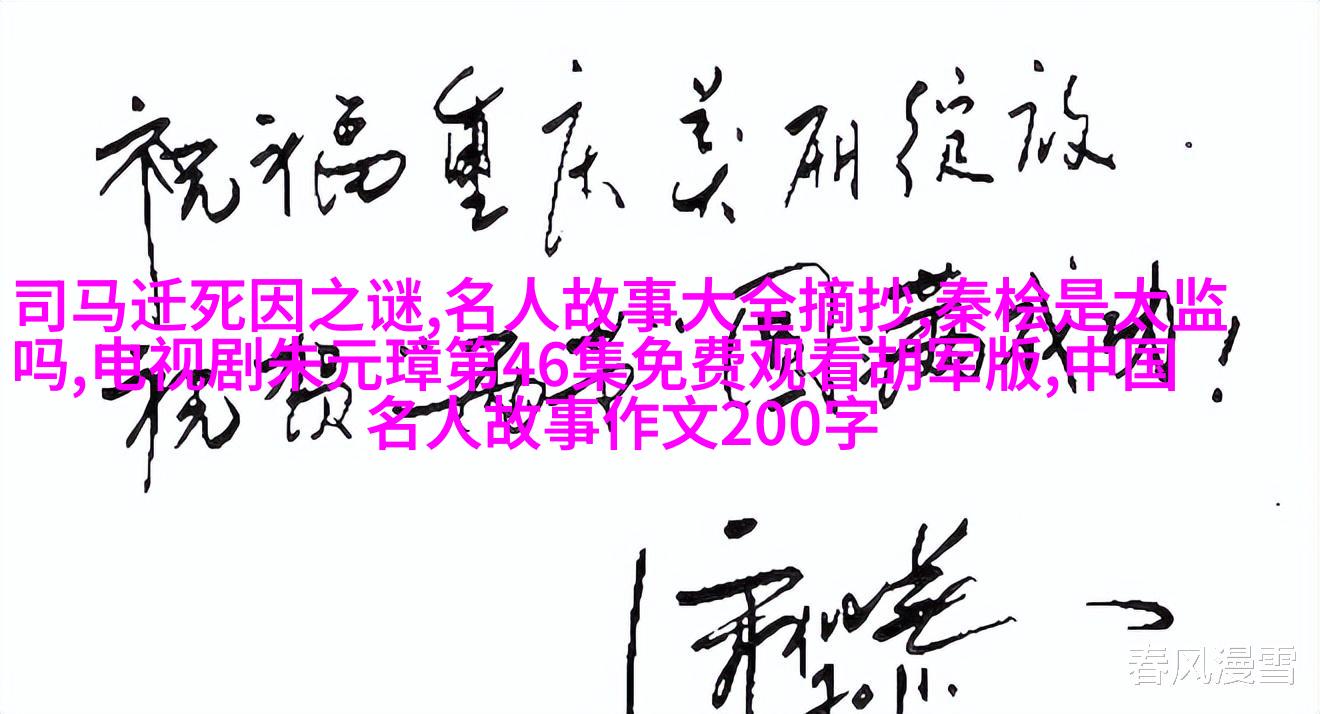 祝福重庆美丽绽放.
司马迁死因之谜,名人故事大全摘抄,秦桧是太监
吗,电视剧朱元璋第46集免费观看胡军版,中国
名人故事作文200字
圆满成功!
2011.
春风漫雪